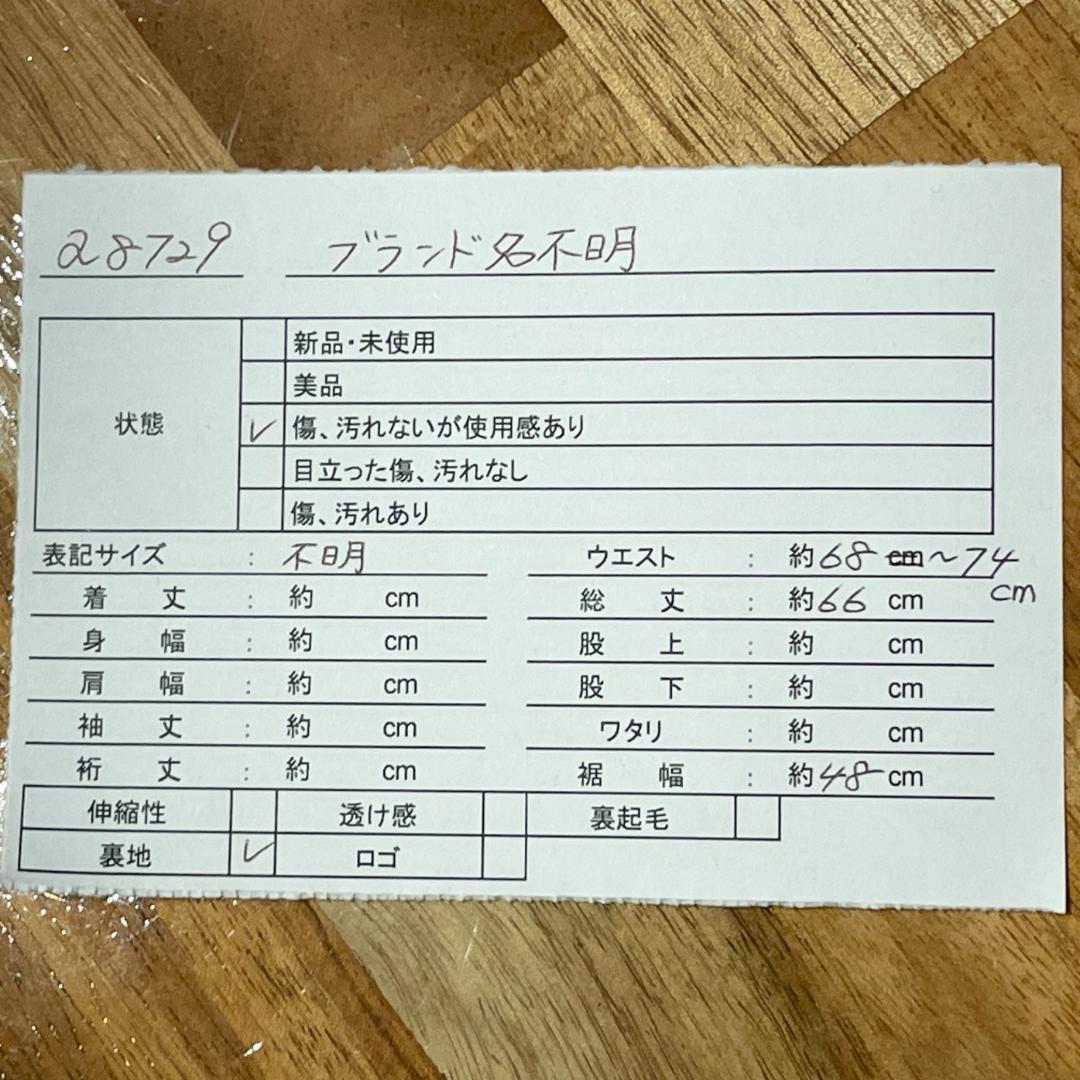 28729 ブランド名不明
新品・未使用
美品
状態 ✓ 傷、汚れないが使用感あり
目立った傷、汚れなし
傷、汚れあり
表記サイズ : 不明 ウエスト : 約68 cm~74 cm
着丈 : 約 cm 総丈 : 約66 cm
身幅 : 約 cm 股上 : 約 cm
肩幅 : 約 cm 股下 : 約 cm
袖丈 : 約 cm ワタリ : 約 cm
裄丈 : 約 cm 裾幅 : 約48 cm
伸縮性 透け感 裏起毛
裏地 ✓ ロゴ